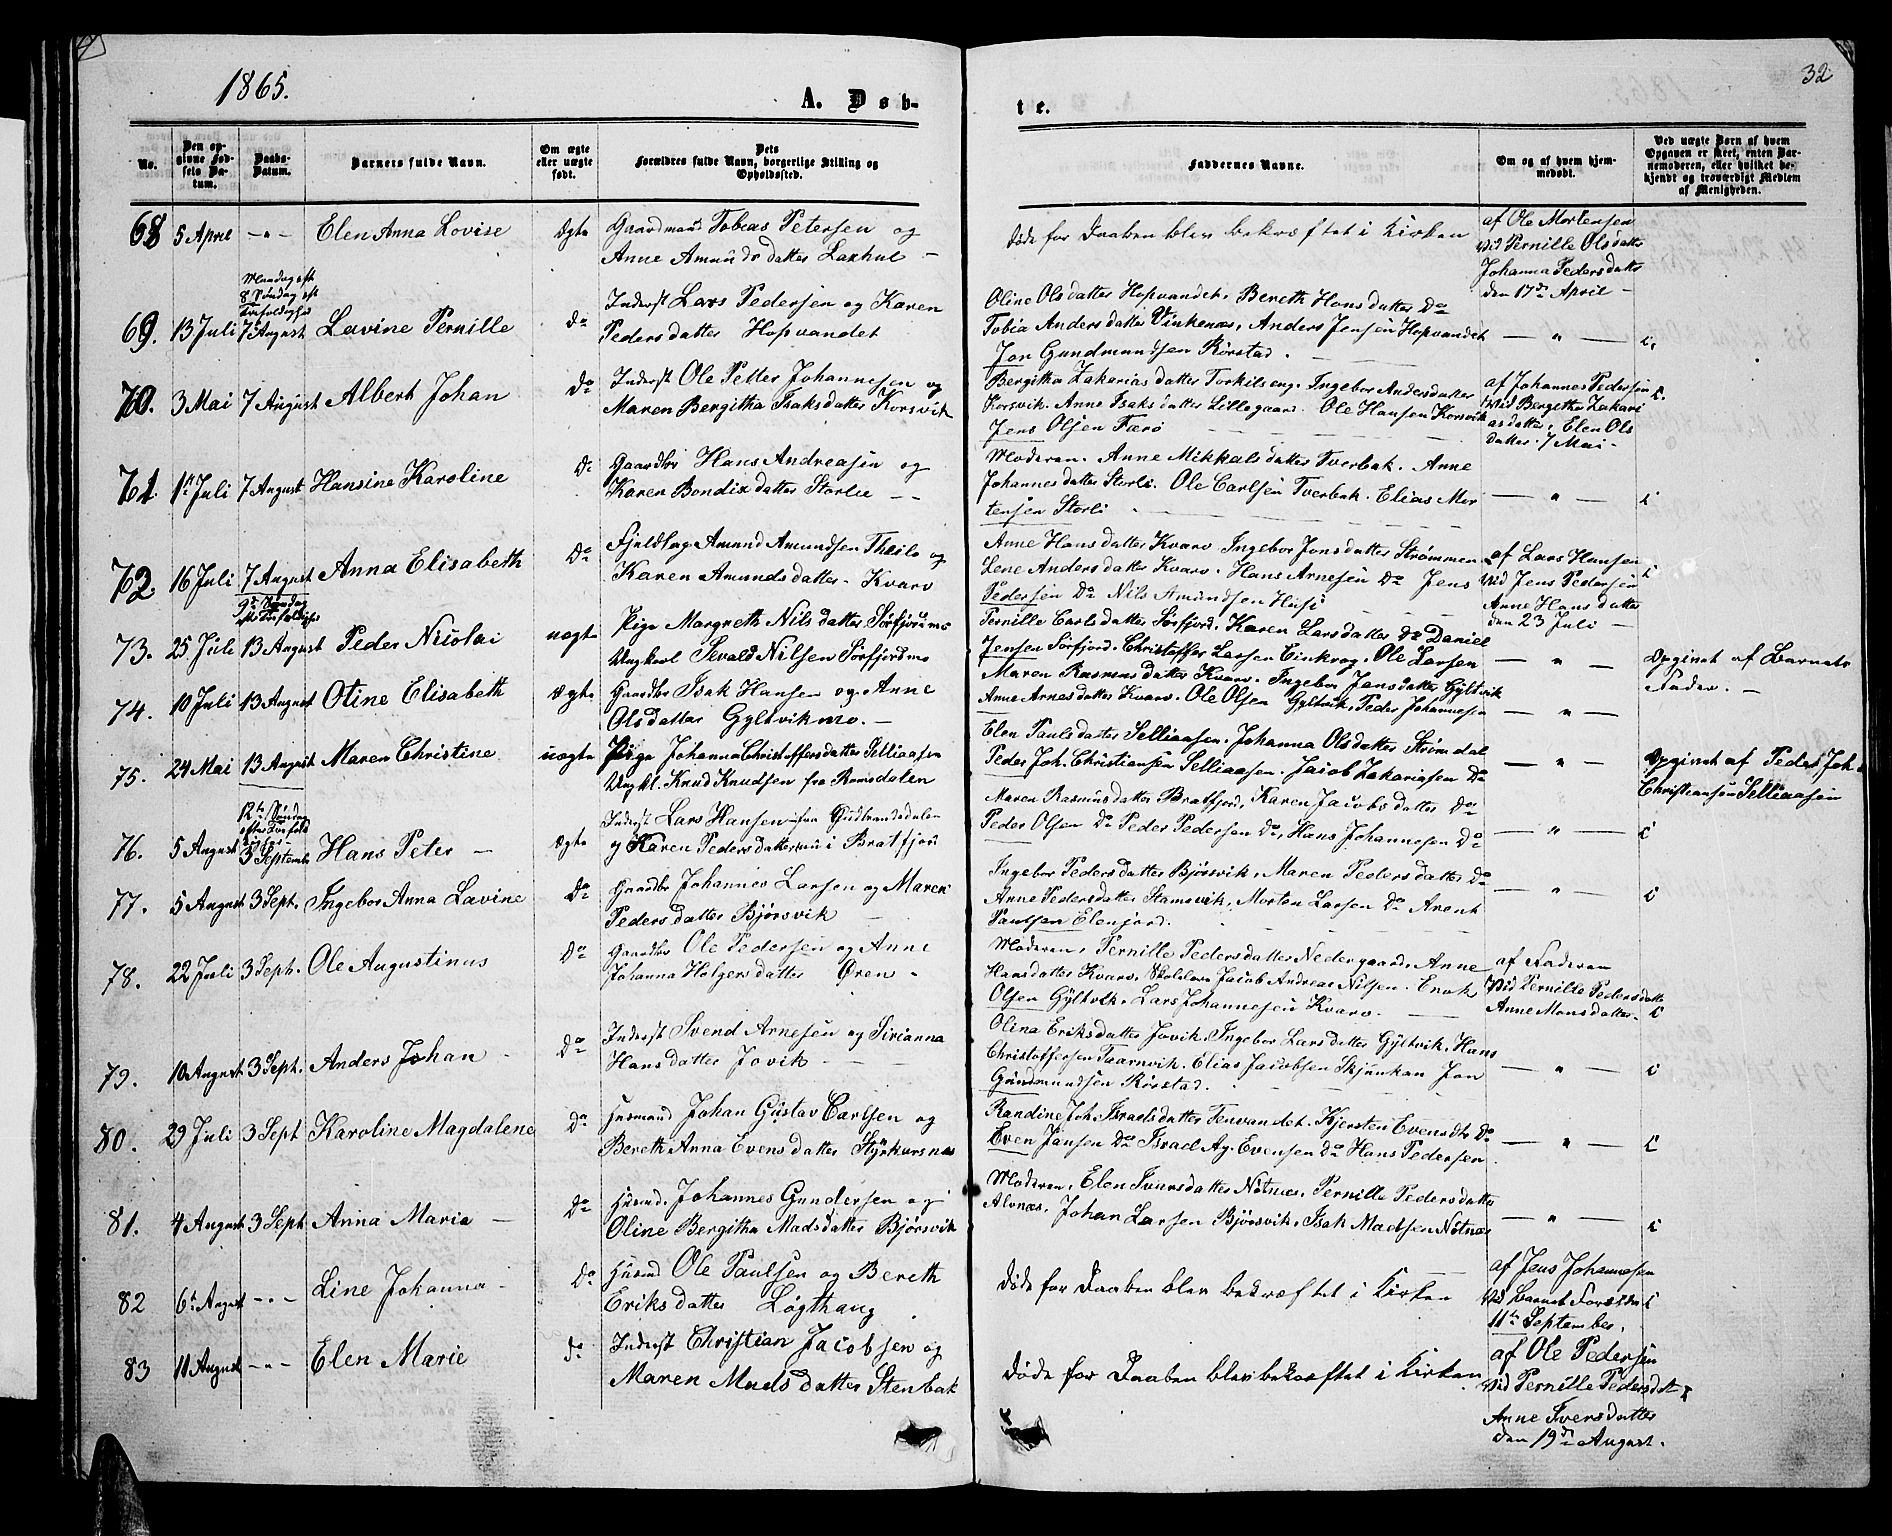 1865.
32
A. Døb-
te.
No.
Den op-
givne Fød-
sels Da-
tum.
Daabs-
Datum.
Barnets fulde Navn.
Om ægte
eller uægte
født.
Dets
Forældres fulde Navn, borgerlige Stilling og
Opholdssted.
Faddernes Navne.
Om og af hvem hjem-
medøbt.
Ved uægte Barn af hvem
Opgaven er skeet, enten Bar-
nemoderen, eller hvilket be-
kjendt og troværdigt Medlem
af Menigheden.
68 5 April — " — Elen Anna Lovise Ægte Gaardmand Tobias Petersen og
Anne Amunds datter Laxhul —
Døde før Daaben blev bekræftet i Kirken
af Ole Mortensen
Vid Pernille Olsdatter
Johanna Pedersdatter
den 17de April —
Mandag eft
8 Søndag eft
Trefoldighed
69. 13 Juli 7 August Lavine Pernille Do Inderst Lars Pedersen og Karen
Pedersdatter Hopvandet
Oline Olsdatter Hopvandet, Bereth Hansdatter Do
Tobia Andersdatter Vinkenæs, Anders Jensen Hopvandet
Jon Gundmundsen Rørstad.
— " —
70. 3 Mai 7 August Albert Johan Do Inderst Ole Petter Johannesen og
Maren Bergitha Isaksdatter Korsvik
Bergitha Zakariasdatter Torkilseng. Ingebor Andersdatter
Korsvik. Anne Isaksdatter Lillegaard. Ole Hansen Korsvik
Jens Olsen Færø
af Johannes Pedersen
Vid Bergitha Zakari
asdatter, Elen Ols
datter. 7 Mai —
71. 1st Juli 7 August Hansine Karoline Do Gaardbr Hans Andreasen og
Karen Bendixdatter Storlie — —
Moderen. Anne Mikkalsdatter Tverbak. Anne
Johannesdatter Storli. Ole Carlsen Tverbak. Elias Mor
tensen Storli
— " —
72. 16 Juli 7 August Anna Elisabeth Do Amund Amundsen og
Karen Amundsdatter — Kvarv
Anne Hansdatter Kvarv. Ingebor Jonsdatter Strømmen
Lene Andersdatter Kvarv. Hans Arnesen Do Jens
Pedersen Do Nils Amundsen Husi
af Lars Hansen
Vid Jens Pedersen
Anne Hansdatter
den 23 Juli —
9de Søndag
eft. Trefoldighed
73. 25 Juli 13 August Peder Nicolai uægte Pige Margreth Nilsdatter Sørfjordmo
Ungkarl Sevald Nilsen Sørfjordmo
Pernille Carlsdatter Sørfjord. Karen Larsdatter Do Daniel
Jensen Sørfjord. Christoffer Larsen Einkrog. Ole Larsen
— " —
Opgivet af Barnets
Fader. —
74. 10 Juli 13 August Otine Elisabeth Ægte Gaardbr Isak Hansen og Anne
Olsdatter Gyltvikmo. —
Maren Rasmusdatter Kvarv. Ingebor Jensdatter Gyltvik
Anne Arnesdatter Kvarv. Ole Olsen Gyltvik, Peder Johannesen
— " —
75. 24 Mai 13 August Maren Christine uægte Pige Johanna Christoffersdatter Selliaasen
Ungkl. Knud Knudsen fra Romsdalen
Elen Paulsdatter Selliaasen. Johanna Olsdatter Strømdal
Peder Joh. Christiansen Selliaasen. Jacob Zakariasen Do
— " —
Opgivet af Peder Joh
Christiansen Selliaasen
12te Søndag
efter Trefold
76. 5 August 3 Septembr Hans Peter — Ægte Inderst Lars Hansen fra Gudbrandsdalen
og Karen Pedersdatter nu i Bratfjord
Maren Rasmusdatter Bratfjord, Karen Jacobsdatter Do
Peder Olsen Do Peder Pedersen Do, Hans Johannesen Do
— " —
77. 5 August 3 Sept. Ingebor Anna Lavine Do Gaardbr Johannes Larsen og Maren
Pedersdatter Bjørsvik —
Ingebor Pedersdatter Bjørsvik, Maren Pedersdatter Do
Anne Pedersdatter Stamsvik, Morten Larsen Do Arent
Paulsen Elenjord.
— " —
78. 22 Juli 3 Sept. Ole Augustinus Do Gaardbr Ole Pedersen og Anne
Johanna Holgersdatter Øren —
Moderen, Pernille Pedersdatter Nedergaard, Anne
Hansdatter Kvarv, Jacob Andreas Nilsen. Enok
Olsen Gyltvik. Lars Johannesen Kvarv.
af Faderen
Vid Pernille Pedersdatter
Anne Monsdatter.
79. 10 August 3 Sept. Anders Johan — Do Inderst Svend Arnesen og Sirianna
Hansdatter Jovik —
Olina Eriksdatter Jovik, Ingebor Larsdatter Gyltvik, Hans
Christoffersen Taarnvik. Elias Jacobsen Skjunkan Jon
Gundmundsen Rørstad.
— " —
80. 29 Juli 3 Sept Karoline Magdalene Do Husmand Johan Gustav Carlsen og
Bereth Anna Evensdatter Styrkursnæs
Randine Joh. Israelsdatter Tenvandet. Kjersten Evensdtr Do
Even Jansen Do Israel Ag. Evensen Do Hans Pedersen
— " —
81. 4 August 3 Sept Anna Maria — Do Husmd. Johannes Gundersen og
Oline Bergitha Madsdatter Bjørsvik
Moderen, Elen Iversdatter Nøtnæs, Pernille Pedersdatter
Alvnæs, Johan Larsen Bjørsvik, Isak Madsen Nøtnæs
— " —
82 6te August — " — Line Johanna — Do Husmd Ole Paulsen og Bereth
Eriksdatter Løgthaug
Døde før Daaben blev bekræftet i Kirken
af Jens Johannesen
Vid Barnets Forældre
11te September.
83 11 August — " — Elen Marie do Inderst Christian Jacobsen og
Maren Madsdatter Stenbak
Døde før Daaben blev bekræftet i Kirken
af Ole Pedersen
Vid Pernille Pedersdat
Anne Iversdatter
den 19de August.